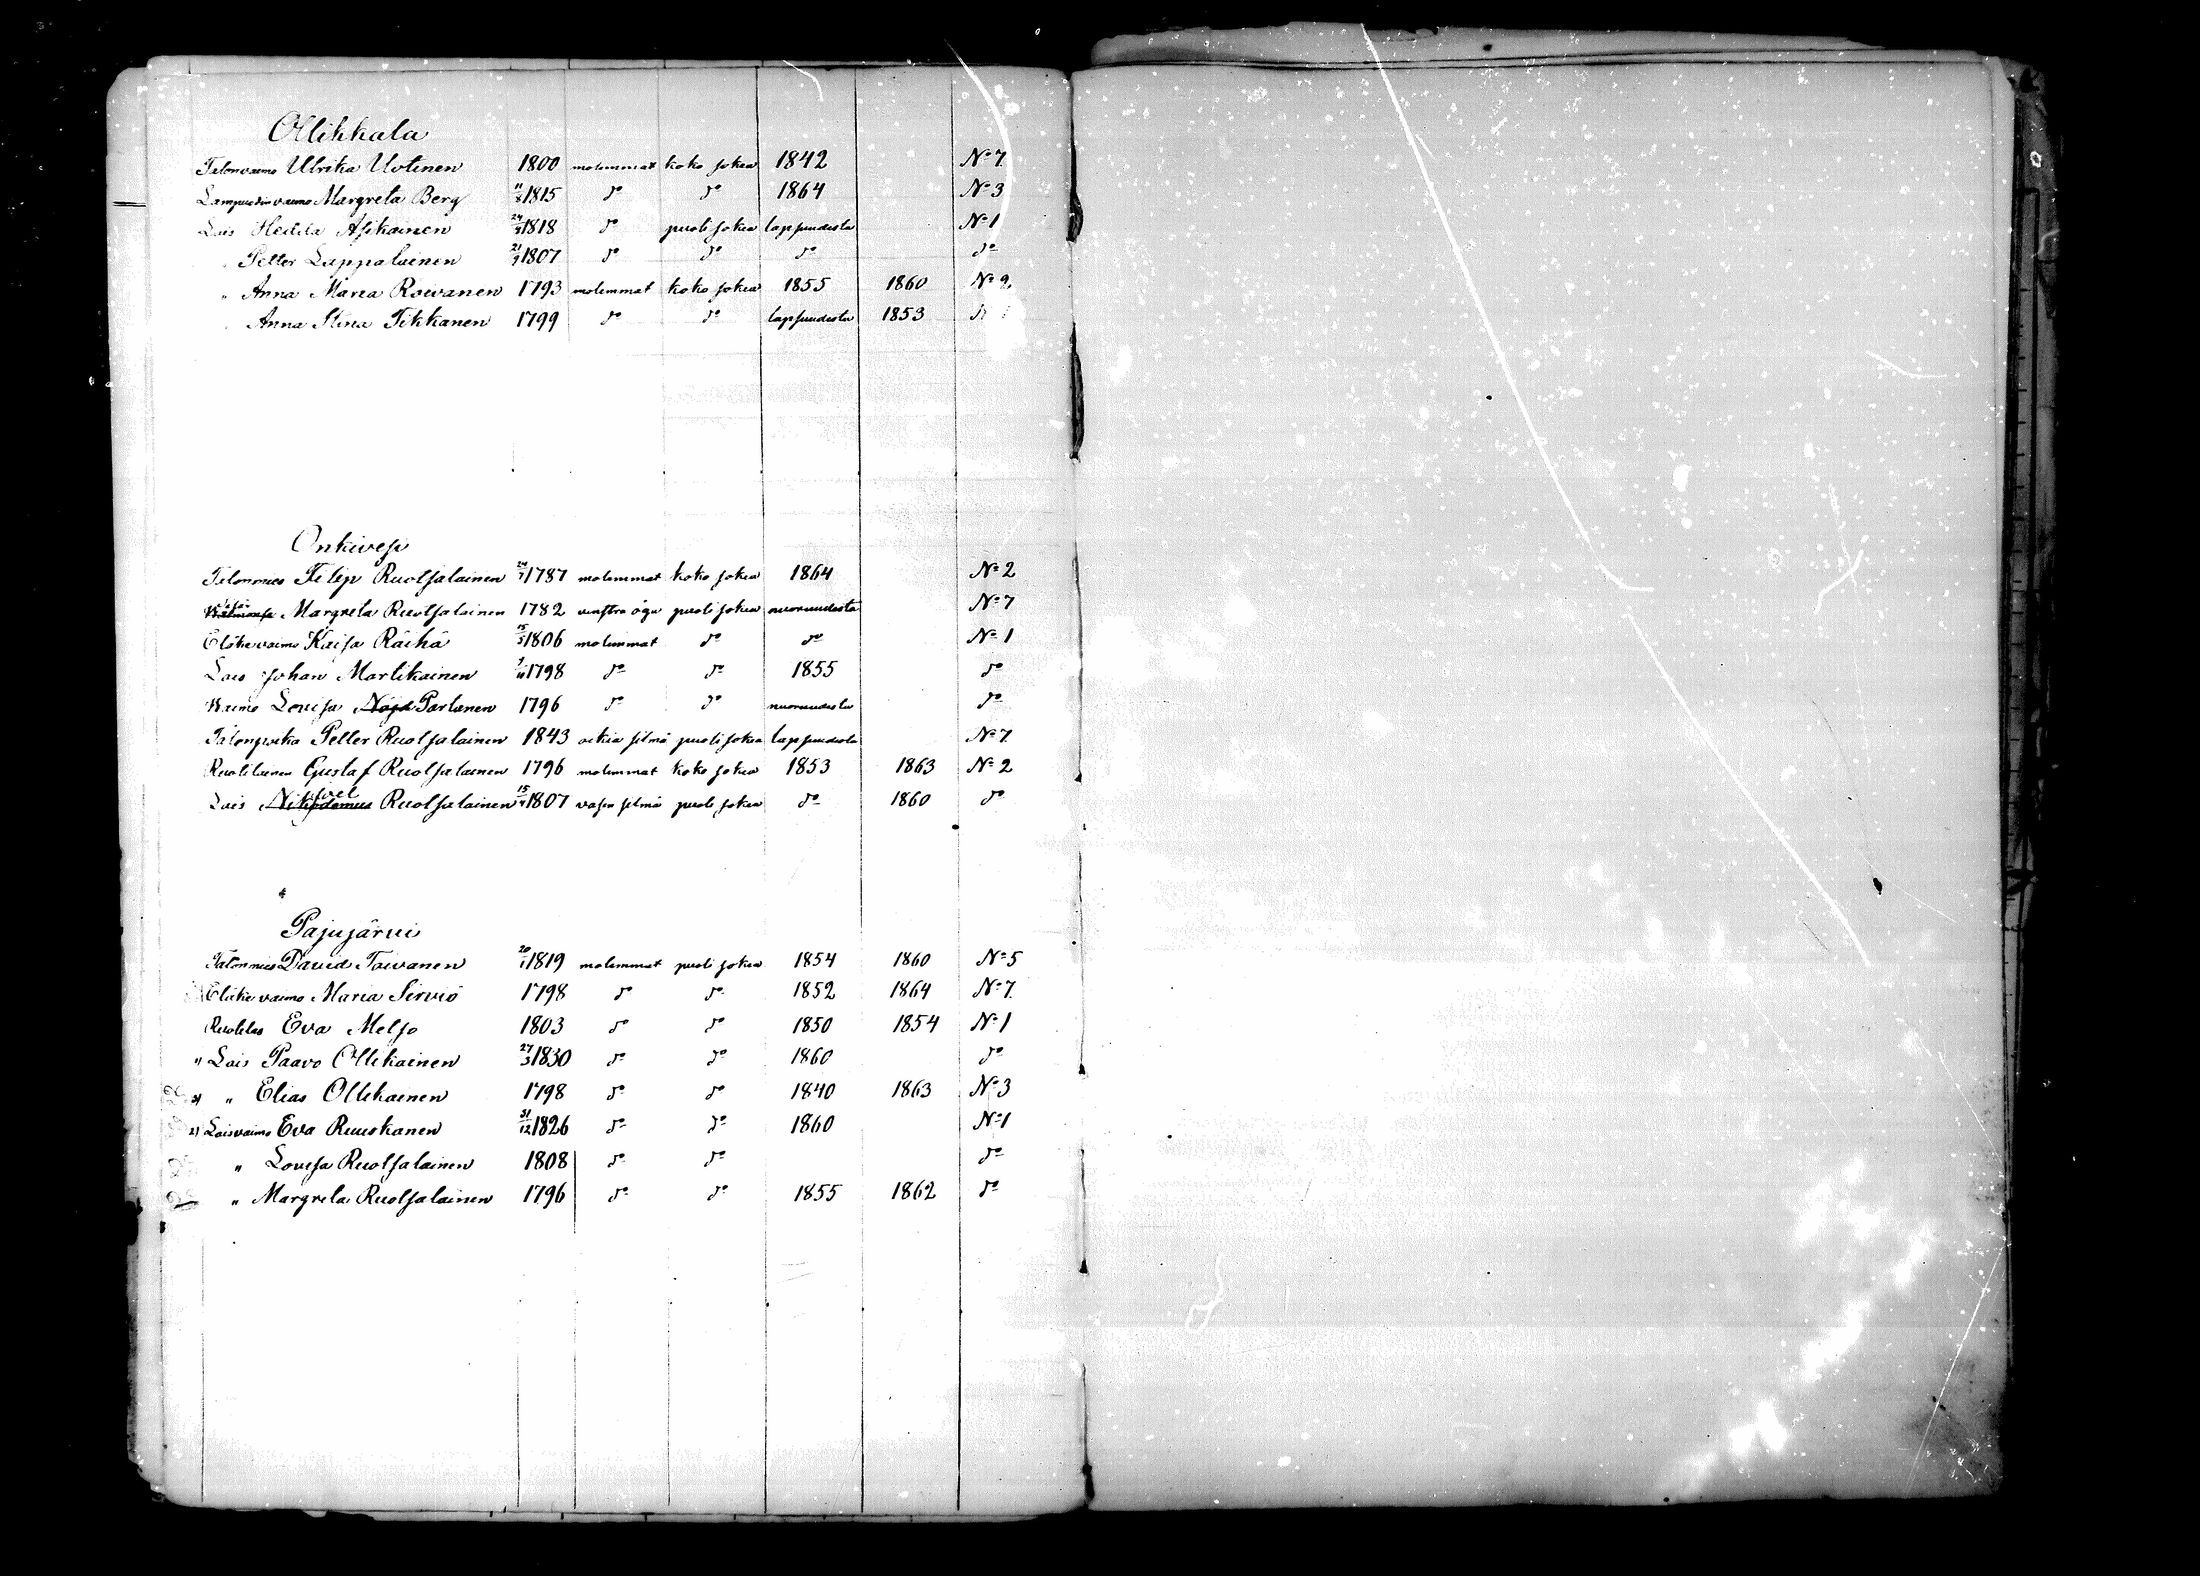 Ollikkala
Talonvaimo Ulrika Uotinen 1800 molemmat koko sokea 1842 No 7
Lampuodin vaimo Margreta Berg 11/2 1815 do do 1864 No 3
Lois Hedda Asikainen 24/9 1818 do puoli sokea lapsuudesta No 1
" Petter Lappalainen 21/9 1807 do do do do
" Anna Maria Rowanen 1793 molemmat koko sokea 1855 1860 No 2
" Anna Stina Tikkanen 1799 do do lapsuudesta 1853
Onkivesi
Talonmies Filip Ruotsalainen 24/7 1787 molemmat koko sokea 1864 No 2
Margreta Ruotsalainen 1782 venstra öga puoli sokea nuoruudesta No 7
Eläkevaimo Kaisa Räihä 15/5 1806 molemmat do do No 1
Lois Johan Martikainen 7/10 1798 do do 1855 do
Waimo Lovisa Partanen 1796 do do nuoruudesta do
Talonpoika Petter Ruotsalainen 1843 oikia silmä puoli sokea lapsuudesta No 7
Ruotilainen Gustaf Ruotsalainen 1796 molemmat koko sokea 1853 1863 No 2
Lois Ruotsalainen 15/4 1807 vasen silmä puoli sokea do 1860 do
Pajujärvi
Talonmies David Toivanen 20/1 1819 molemmat puoli sokea 1854 1860 No 5
Eläkevaimo Maria Sirviö 1798 do do 1852 1864 No 7
Ruotilas Eva Melso 1803 do do 1850 1854 No 1
" Lois Paavo Ollikainen 27/3 1830 do do 1860 do
" Elias Ollikainen 1798 do do 1840 1863 No 3
Loisvaimo Eva Ruuskanen 31/12 1826 do do 1860 No 1
" Lovisa Ruotsalainen 1808 do do do
" Margreta Ruotsalainen 1796 do do 1855 1862 do